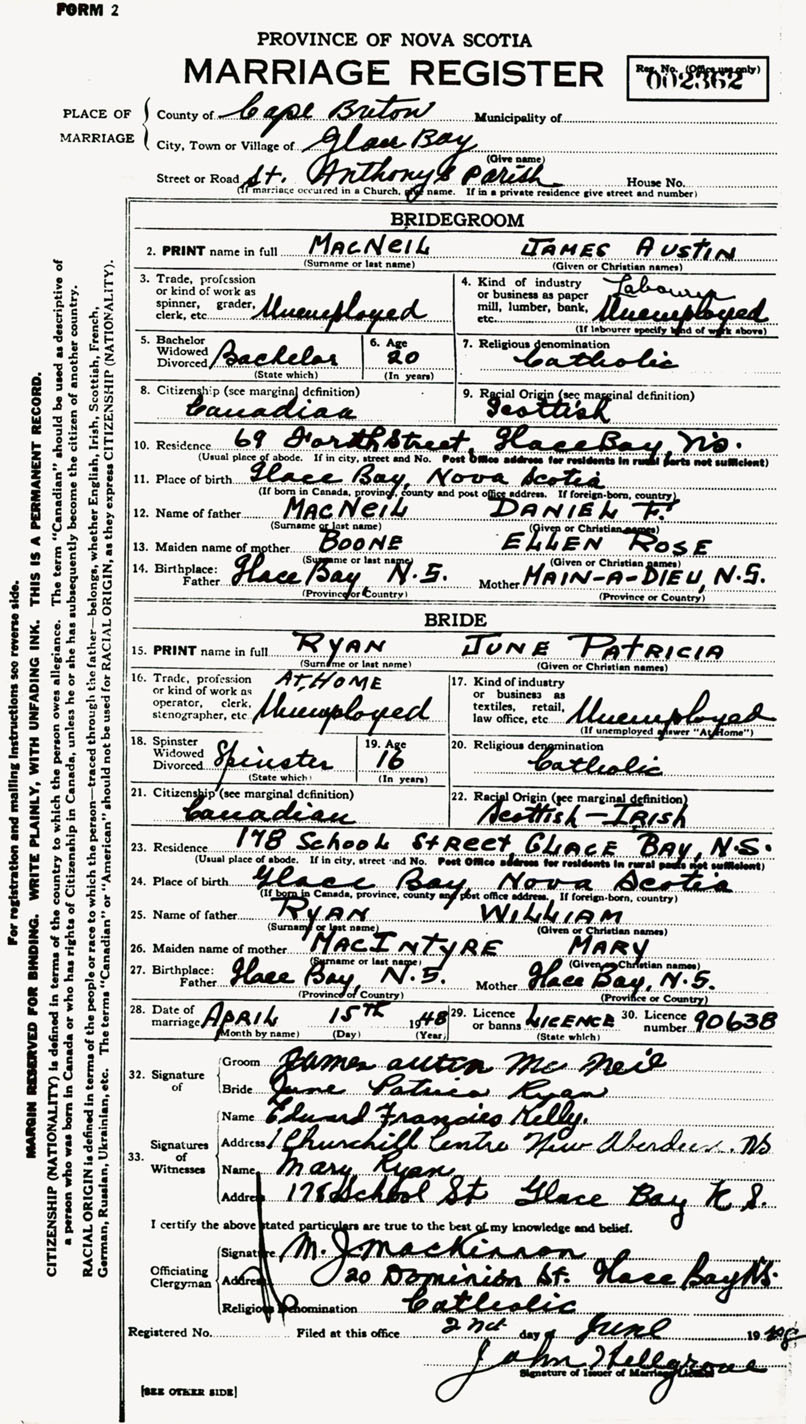 FORM 2
PROVINCE OF NOVA SCOTIA
MARRIAGE REGISTER
Reg. No. (Office use only)
002362
PLACE OF MARRIAGE
County of Cape Breton Municipality of
City, Town or Village of Glace Bay
(Give name)
Street or Road St. Anthony's Parish House No.
(If marriage occurred in a Church, give name. If in a private residence give street and number)
BRIDEGROOM
2. PRINT name in full MacNeil James Austin
(Surname or last name) (Given or Christian names)
3. Trade, profession or kind of work as spinner, grader, clerk, etc. Unemployed
4. Kind of industry or business as paper mill, lumber, bank, etc. Labourer Unemployed
(If labourer specify kind of work above)
5. Bachelor Widowed Divorced Bachelor
(State which)
6. Age 20
(In years)
7. Religious denomination Catholic
8. Citizenship (see marginal definition) Canadian
9. Racial Origin (see marginal definition) Scottish
10. Residence 69 Forth Street, Glace Bay, N.S.
(Usual place of abode. If in city, street and No. Post Office address for residents in rural parts not sufficient)
11. Place of birth Glace Bay, Nova Scotia
(If born in Canada, province, county and post office address. If foreign-born, country)
12. Name of father MacNeil Daniel F.
(Surname or last name) (Given or Christian names)
13. Maiden name of mother Boone Ellen Rose
(Surname or last name) (Given or Christian names)
14. Birthplace: Father Glace Bay, N.S. Mother Main-a-Dieu, N.S.
(Province or Country) (Province or Country)
BRIDE
15. PRINT name in full Ryan June Patricia
(Surname or last name) (Given or Christian names)
16. Trade, profession or kind of work as operator, clerk, stenographer, etc. At Home Unemployed
17. Kind of industry or business as textiles, retail, law office, etc. Unemployed
(If unemployed answer "At Home")
18. Spinster Widowed Divorced Spinster
(State which)
19. Age 16
(In years)
20. Religious denomination Catholic
21. Citizenship (see marginal definition) Canadian
22. Racial Origin (see marginal definition) Scottish-Irish
23. Residence 178 School Street Glace Bay, N.S.
(Usual place of abode. If in city, street and No. Post Office address for residents in rural parts not sufficient)
24. Place of birth Glace Bay Nova Scotia
(If born in Canada, province, county and post office address. If foreign-born, country)
25. Name of father Ryan William
(Surname or last name) (Given or Christian names)
26. Maiden name of mother MacIntyre Mary
(Surname or last name) (Given or Christian names)
27. Birthplace: Father Glace Bay, N.S. Mother Glace Bay, N.S.
(Province or Country) (Province or Country)
28. Date of marriage April 15th 1948
(Month by name) (Day) (Year)
29. Licence or banns Licence
(State which)
30. Licence number 90638
32. Signature of
Groom James Autin McNeil
Bride June Patricia Ryan
33. Signatures of Witnesses
Name Edward Francies Kelly.
Address 1 Churchill Centre New Aberdeen. NS
Name Mary Ryan
Address 178 School St Glace Bay N.S.
I certify the above stated particulars are true to the best of my knowledge and belief.
Officiating Clergyman
Signature M. J. MacKinnon
Address 20 Dominion St. Glace Bay NS.
Religious Denomination Catholic
Registered No. Filed at this office 2nd day of June 1948
John
Signature of Issuer of Marriage Licence
[SEE OTHER SIDE]
For registration and mailing instructions see reverse side.
MARGIN RESERVED FOR BINDING. WRITE PLAINLY, WITH UNFADING INK. THIS IS A PERMANENT RECORD.
CITIZENSHIP (NATIONALITY) is defined in terms of the country to which the person owes allegiance. The term "Canadian" should be used as descriptive of
a person who was born in Canada or who has rights of Citizenship in Canada, unless he or she has subsequently become the citizen of another country.
RACIAL ORIGIN is defined in terms of the people or race to which the person—traced through the father—belongs, whether English, Irish, Scottish, French,
German, Russian, Ukrainian, etc. The terms "Canadian" or "American" should not be used for RACIAL ORIGIN, as they express CITIZENSHIP (NATIONALITY).